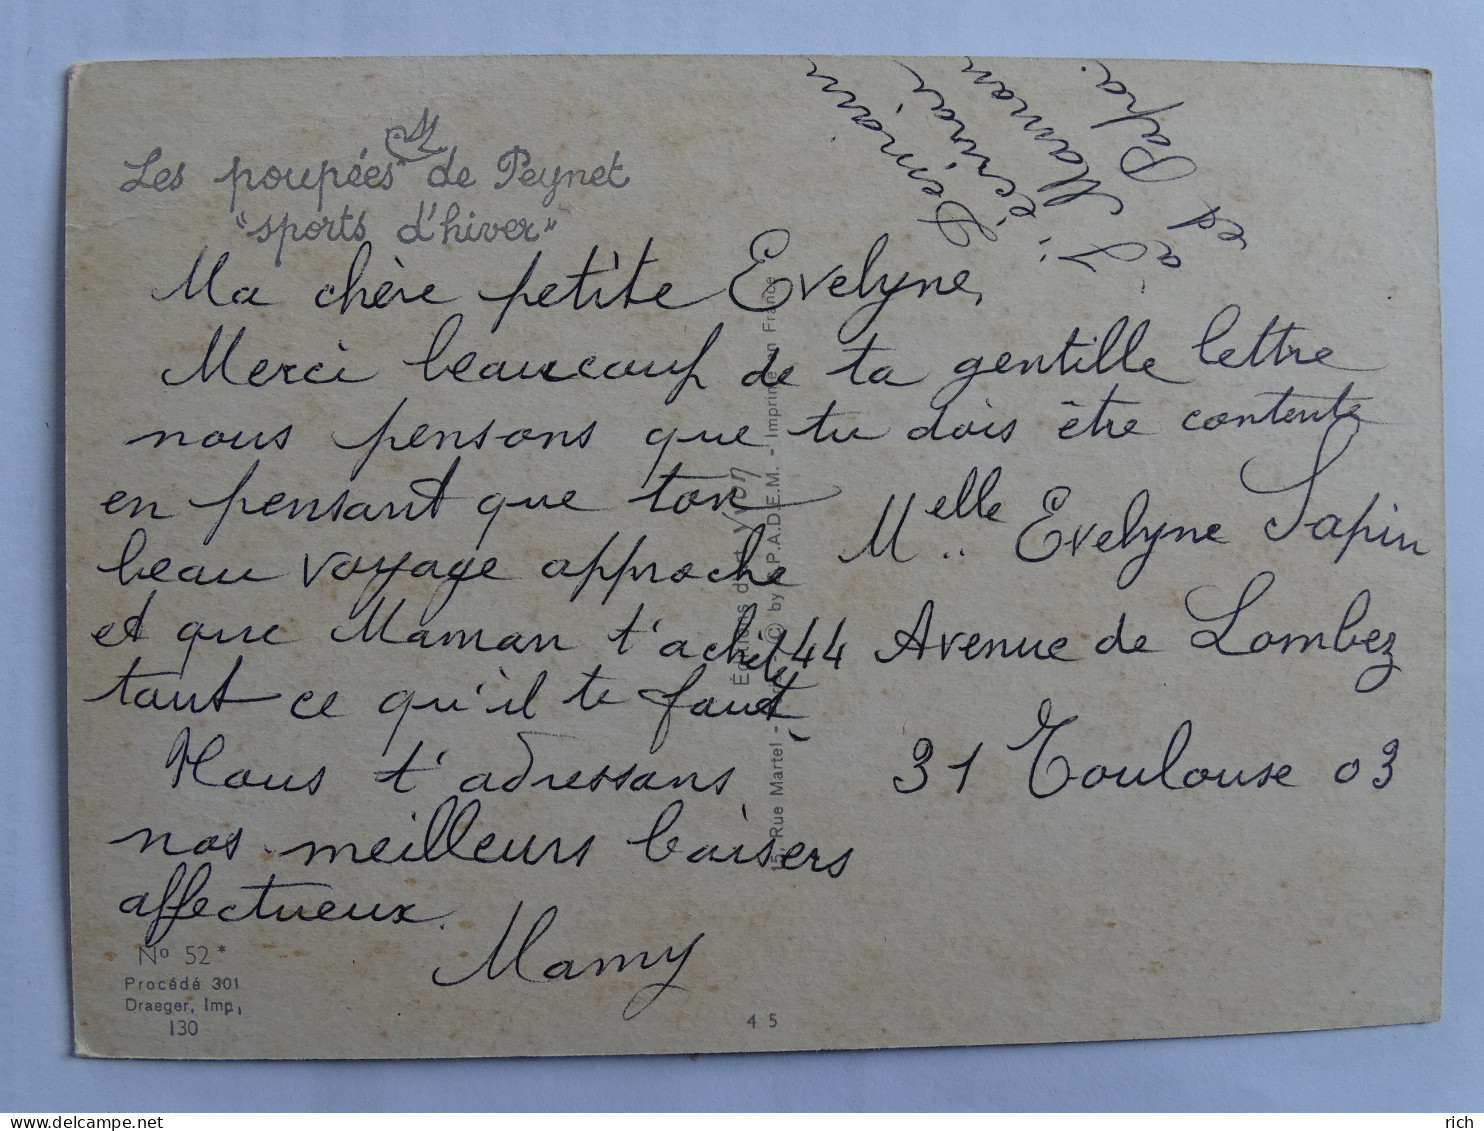 Les poupées de Peynet
"sports d'hiver"
Demain
j'écrirai
à Maman
et Papa.
Ma chère petite Evelyne,
Merci beaucoup de ta gentille lettre
nous pensons que tu dois être contente
en pensant que ton
beau voyage approche
et que Maman t'achète
tout ce qu'il te faut.
Nous t'adressons
nos meilleurs baisers
affectueux.
Mamy
Melle Evelyne Sapin
44 Avenue de Lombez
31 Toulouse 03
Éditions d'art Yvon
Rue Martel - © by S.P.A.D.E.M. - Imprimé en France
No 52*
Procédé 301
Draeger, Imp,
130
45
rich